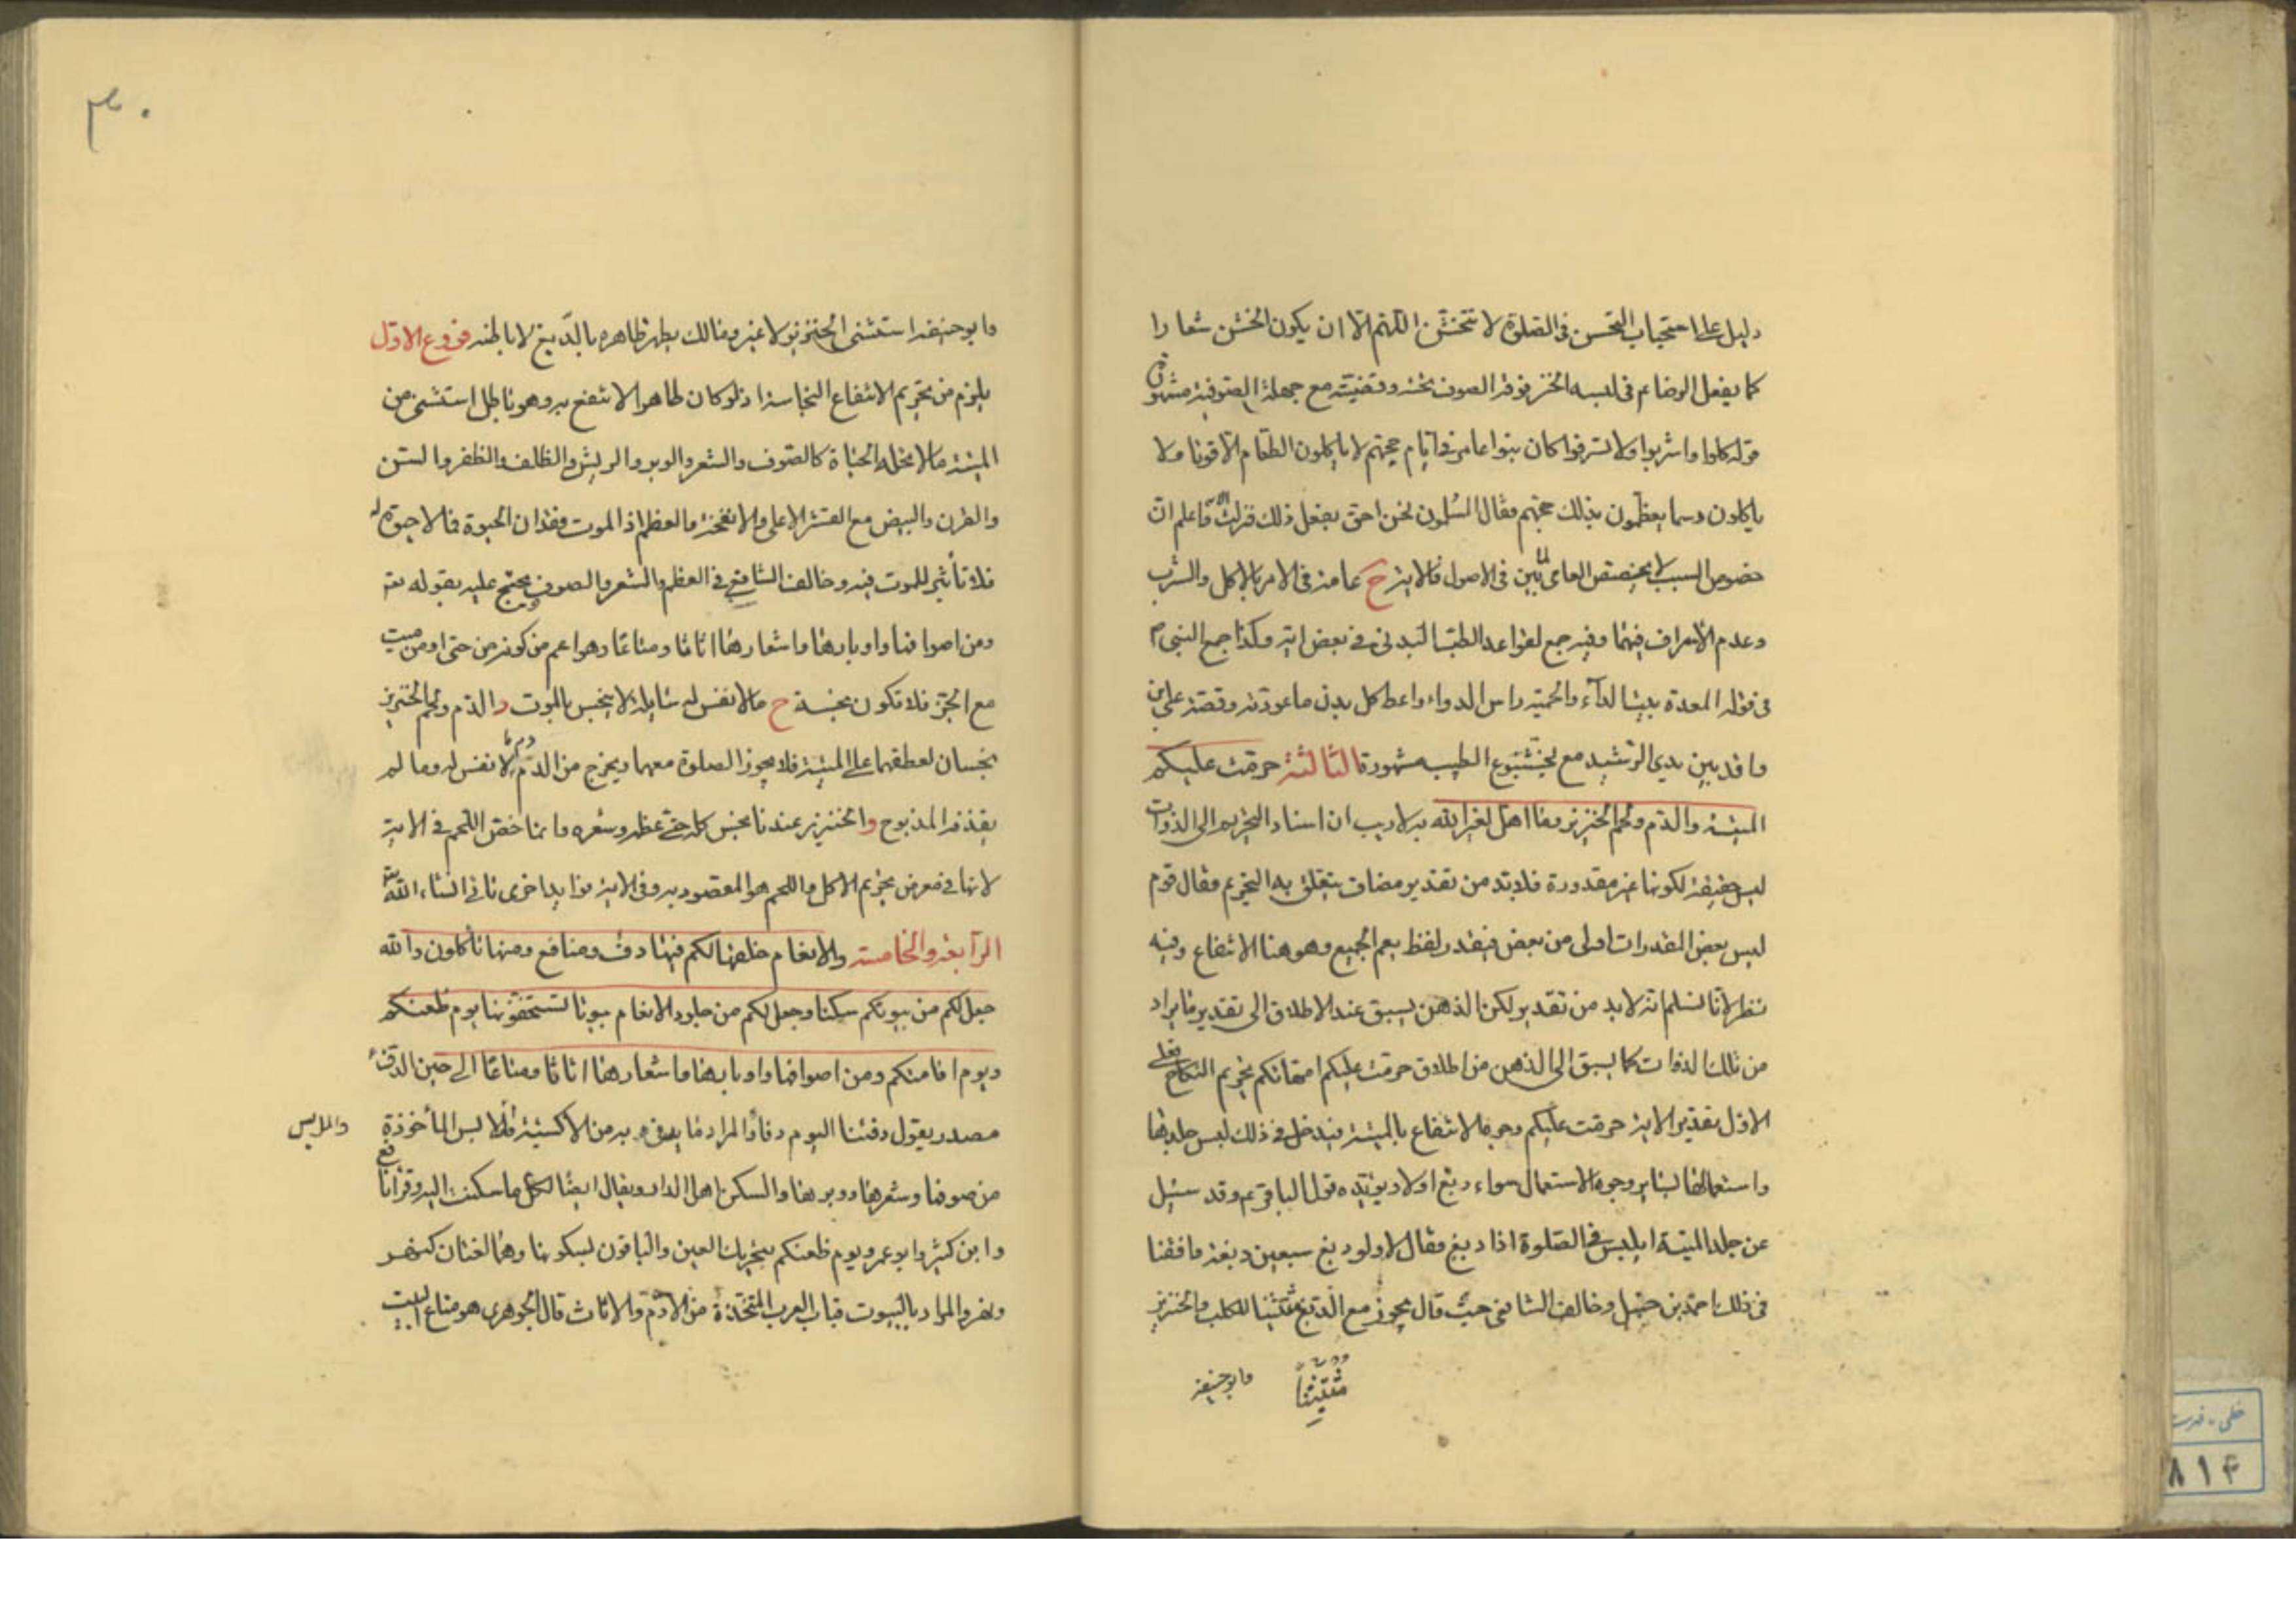 دليل على استحباب التحسن فى الصلوة لا تتخشن اللهم الا ان يكون الخشن شعارا
كما يفعل الرضا ع فى لبسه الخز فوقه الصوف تحته وقضيته مع جهلة الصوفية مشهورة
قوله كلوا واشربوا ولا تسرفوا كان بنوا عامر فى ايام حجهم لا ياكلون الطعام الا قوتا ولا
ياكلون دسما يعظمون بذلك حجهم فقال المسلمون نحن احق بفعل ذلك فنزلت واعلم ان
خصوص السبب لا يخصص العام لما تبين فى الاصول فالاية ح عامة فى الامر بالاكل والشرب
وعدم الاسراف فيهما وفيه جمع لقواعد الطب البدنى فى بعض اية وكذا جمع النبى ص
فى قوله المعدة بيت الداء والحمية راس الدواء واعط كل بدن ما عودته وقصة على بن
واقد بين يدي الرشيد مع بختيشوع الطبيب مشهورة الثالثة حرمت عليكم
الميتة والدم ولحم الخنزير وما اهل لغير الله به لا ريب ان اسناد التحريم الى الذوات
ليس حقيقة لكونها غير مقدورة فلا بد من تقدير مضاف يتعلق به التحريم فقال قوم
ليس بعض المقدرات اولى من بعض فيقدر لفظ يعم الجميع وهو هنا الانتفاع وفيه
نظر لانا نسلم انه لا بد من تقدير لكن الذهن يسبق عند الاطلاق الى تقدير ما يراد
من تلك الذوات كما يسبق الى الذهن من اطلاق حرمت عليكم امهاتكم تحريم النكاح فعلى
الاول تقدير الاية حرمت عليكم وجوه الانتفاع بالميتة فيدخل فى ذلك لبس جلدها
واستعمالها لساير وجوه الاستعمال سواء دبغ او لا ويؤيده قول الباقر ع وقد سئيل
عن جلد الميتة ايلبس فى الصلوة اذا دبغ فقال لا ولو دبغ سبعين دبغة وافقنا
فى ذلك احمد بن حنبل وخالف الشافعى حيث قال يجوز مع الدبغ مستثنيا للكلب والخنزير
وابو حنيفة
وابو حنيفة استثنى الخنزير لا غير ومالك يطهر ظاهره بالدبغ لا باطنه فروع الاول
يلزم من تحريم الانتفاع النجاسة اذ لو كان طاهرا لا نتفع به وهو باطل استثنى من
الميتة ما لا تحله الحياة كالصوف والشعر والوبر والريش والظلف والظفر والسن
والقرن والبيض مع القشر الاعلى والانفحة والعظم اذ الموت فقدان الحيوة فما لا حيوة له
فلا تأثير للموت فيه وخالف الشافعى فى العظم والشعر والصوف ويحتج عليه بقوله تعـ
ومن اصوافها واوبارها واشعارها اثاثا ومتاعا وهو اعم من كونه من حى او من ميت
مع الجز فلا تكون نجسة ح ما لا نفس له سايلة لا ينجس بالموت د الدم ولحم الخنزير
نجسان لعطفهما على الميتة فلا يجوز الصلوة معهما ويخرج من الدم دم ما لا نفس له وما لم
يقذفه المذبوح والخنزير عندنا نجس كله حتى عظمه وشعره وانما خص اللحم فى الاية
لانها فى معرض تحريم الاكل واللحم هو المقصود به وفى الاية فوايد اخرى تاتى انشاء الله تعـ
الرابعة والخامسة والانعام خلقها لكم فيها دفء ومنافع ومنها تأكلون والله
جعل لكم من بيوتكم سكنا وجعل لكم من جلود الانعام بيوتا تستخفونها يوم ظعنكم
ويوم اقامتكم ومن اصوافها واوبارها واشعارها اثاثا ومتاعا الى حين الدفء
مصدر يقول دفئنا اليوم دفأ والمراد ما يدفىء به من الاكسية والملابس المأخوذة
والملابس
من صوفها وشعرها ووبرها والسكن اهل الدار ويقال ايضا لكل ما سكنت اليه وقرأ نافع
وابن كثير وابو عمرو يوم ظعنكم بتحريك العين والباقون بسكونها وهما لغتان كنهر
ونهر والمراد بالبيوت قباب العرب المتخذة من الادم والاثاث قال الجوهرى هو متاع البيت
٣٠
خطى - فهرست
٨١٤